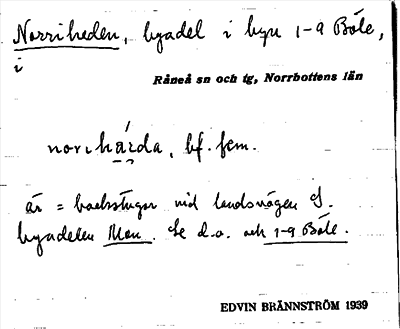 Norriheden, byadel i byn 1-9 Böle,
i
Råneå sn och tg, Norrbottens län
norrhärda, bf. fem.
är = backstugor vid landsvägen S.
byadelen Mon. Se d.o. och 1-9 Böle.
EDVIN BRÄNNSTRÖM 1939